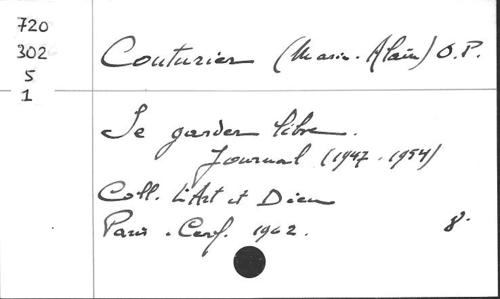 720
302
5
1
Couturier (Marie-Alain) O.P.
Se garder libre.
Journal (1947-1954)
Coll. L'Art et Dieu
Paris. Cerf. 1962. 8°